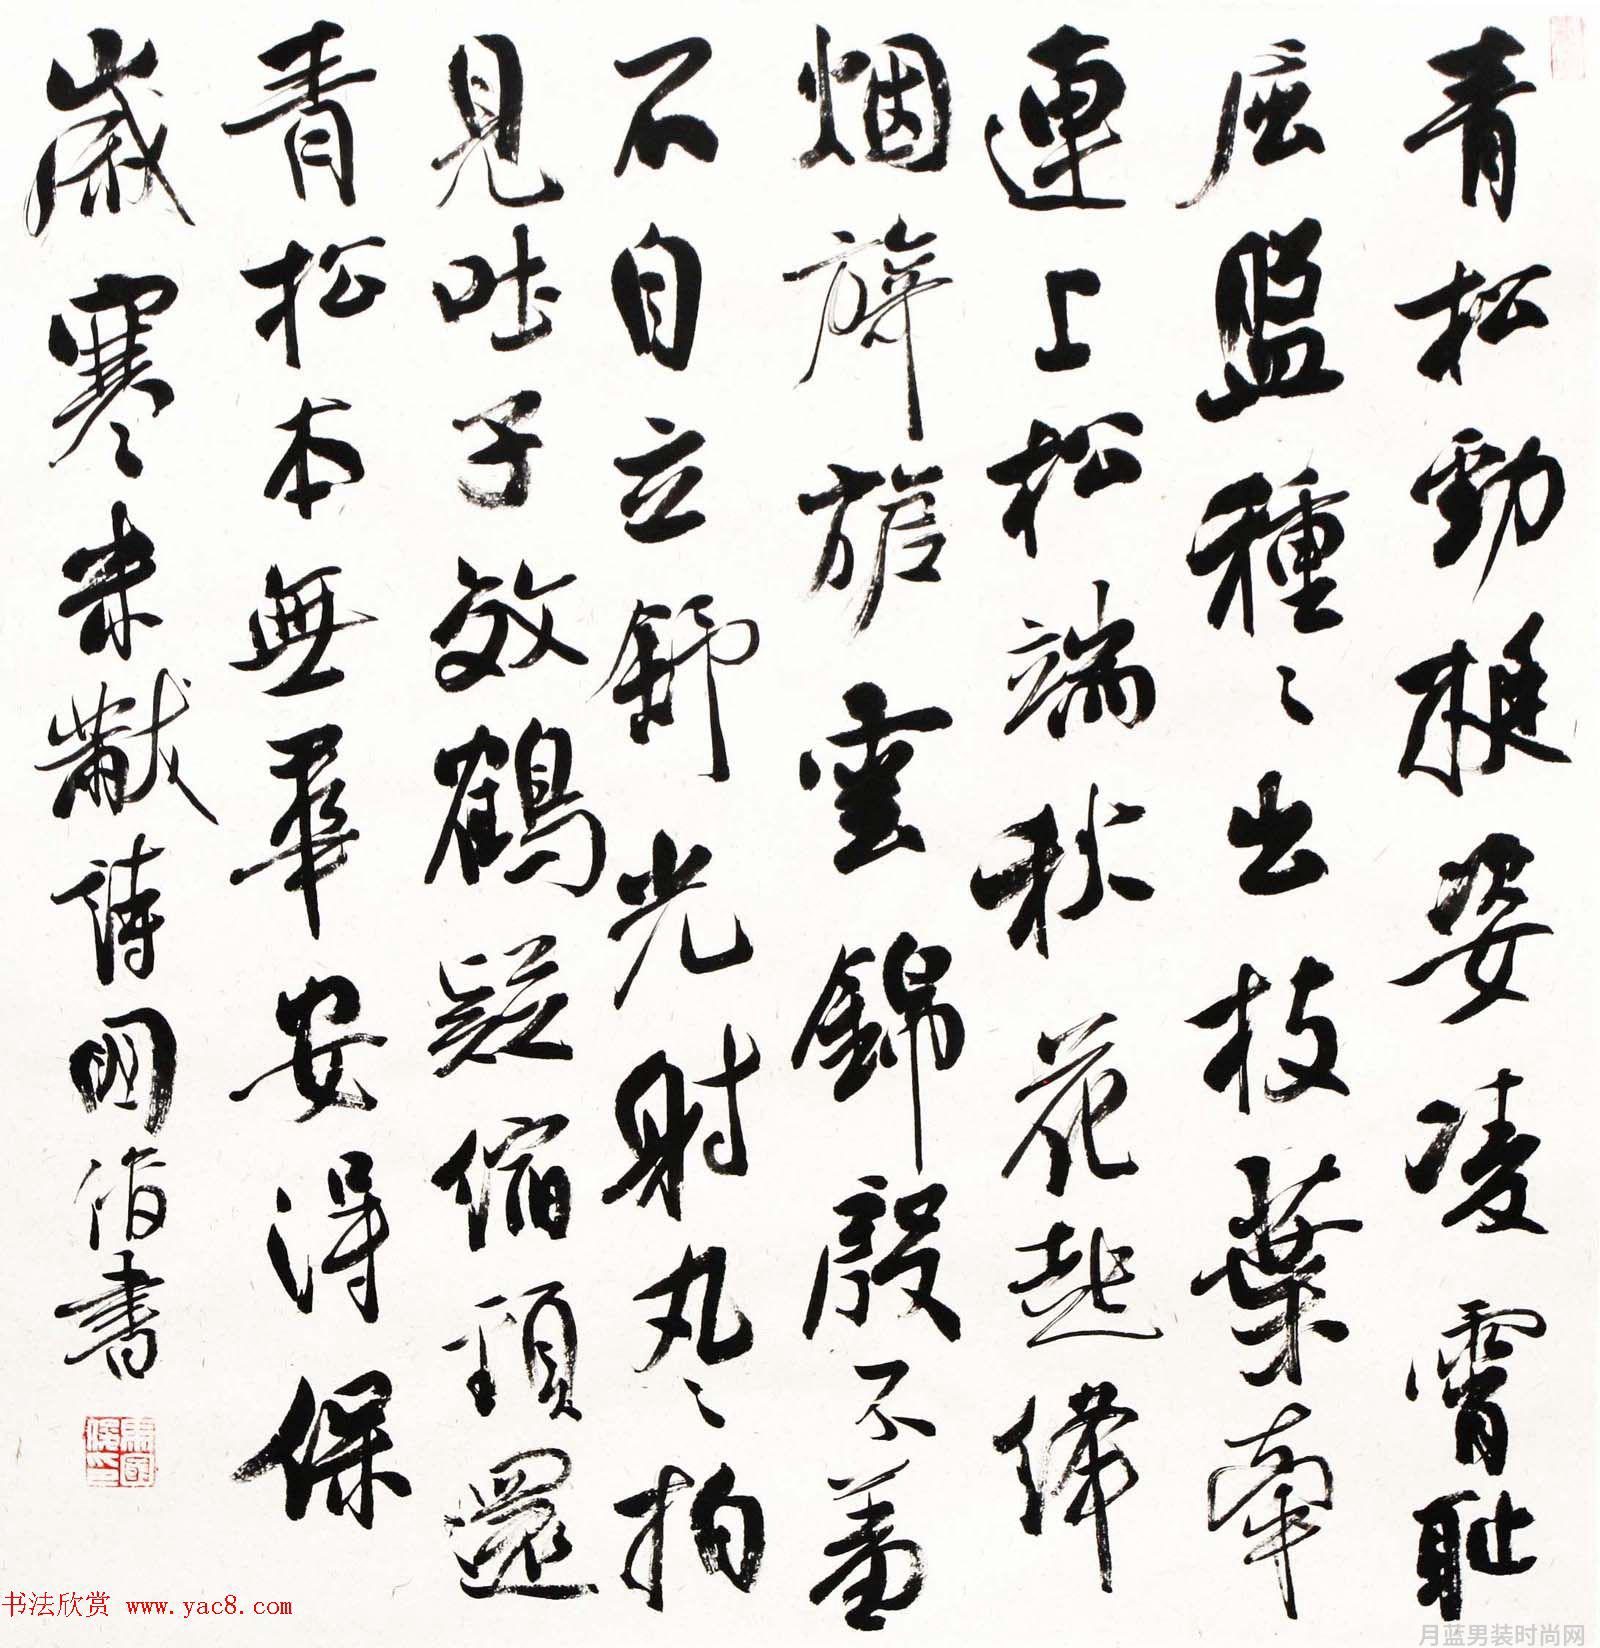 青松勁挺姿凌霄恥
屈盤種〻出枝葉牽
連上松端秋花起絳
烟旖旎雲錦殷不羞
不自立舒光射丸〻柏
見吐子效鶴疑縮頸還
青松本無華安得保
歲寒米黻詩國書
书法欣赏 www.yac8.com
月蓝男装时尚网